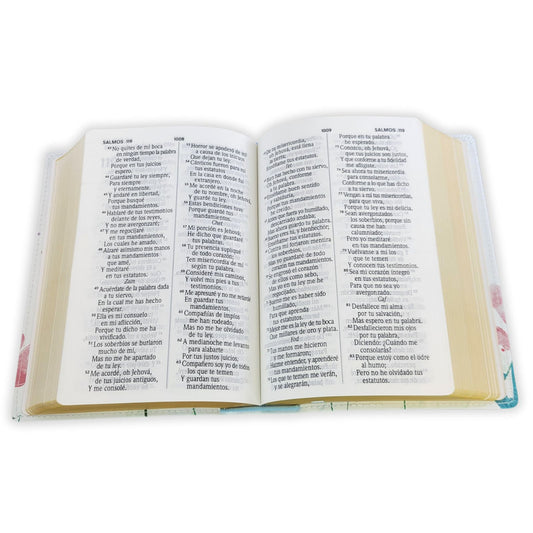 SALMOS 119
1008
43 No quites de mi boca
en ningún tiempo la palabra
de verdad,
Porque en tus juicios
espero.
44 Guardaré tu ley siempre,
Para siempre
y eternamente.
45 Y andaré en libertad,
Porque busqué
tus mandamientos.
46 Hablaré de tus testimonios
delante de los reyes,
Y no me avergonzaré;
47 Y me regocijaré
en tus mandamientos,
Los cuales he amado.
48 Alzaré asimismo mis manos
a tus mandamientos
que amé,
Y meditaré
en tus estatutos.
Zain
49 Acuérdate de la palabra dada
a tu siervo,
En la cual me has hecho
esperar.
50 Ella es mi consuelo
en mi aflicción,
Porque tu dicho me ha
vivificado.
51 Los soberbios se burlaron
mucho de mí,
Mas no me he apartado
de tu ley.
52 Me acordé, oh Jehová,
de tus juicios antiguos,
Y me consolé.
53 Horror se apoderó de mí
a causa de los inicuos
Que dejan tu ley.
54 Cánticos fueron para mí
tus estatutos
En la casa en donde fui
extranjero.
55 Me acordé en la noche
de tu nombre, oh Jehová,
Y guardé tu ley.
56 Estas bendiciones tuve
Porque guardé tus
mandamientos.
Chet
57 Mi porción es Jehová;
He dicho que guardaré
tus palabras.
58 Tu presencia supliqué
de todo corazón;
Ten misericordia de mí
según tu palabra.
59 Consideré mis caminos,
Y volví mis pies a tus
testimonios.
60 Me apresuré y no me retardé
En guardar tus
mandamientos.
61 Compañías de impíos
me han rodeado,
Mas no me he olvidado
de tu ley.
62 A medianoche me levanto
para alabarte
Por tus justos juicios.
63 Compañero soy yo de todos
los que te temen
Y guardan tus
mandamientos.
1009
SALMOS 119
De tu misericordia,
oh Jehová, está llena
la tierra;
Enséñame tus
estatutos.
Bien has hecho con tu siervo,
oh Jehová, conforme
a tu palabra.
Enséñame buen sentido
y sabiduría,
Porque tus mandamientos
he creído.
Antes que fuera yo humillado,
descarriado andaba;
Mas ahora guardo tu palabra.
Bueno eres tú, y bienhechor;
Enséñame tus estatutos.
Contra mí forjaron mentira
los soberbios,
Mas yo guardaré de todo
corazón tus mandamientos.
Se engrosó el corazón
de ellos como sebo,
Mas yo en tu ley me he
regocijado.
Bueno me es haber sido
humillado,
Para que aprenda
tus estatutos.
Mejor me es la ley de tu boca
Que millares de oro y plata.
Yod
Tus manos me hicieron
y me formaron;
Hazme entender, y aprenderé
tus mandamientos.
Los que te temen me verán,
y se alegrarán,
Porque en tu palabra
he esperado.
75 Conozco, oh Jehová,
que tus juicios son justos,
Y que conforme a tu fidelidad
me afligiste.
76 Sea ahora tu misericordia
para consolarme,
Conforme a lo que has dicho
a tu siervo.
77 Vengan a mí tus misericordias,
para que viva,
Porque tu ley es mi delicia.
78 Sean avergonzados
los soberbios, porque sin
causa me han
calumniado;
Pero yo meditaré
en tus mandamientos.
79 Vuélvanse a mí los
que te temen
Y conocen tus testimonios.
80 Sea mi corazón íntegro
en tus estatutos,
Para que no sea yo
avergonzado.
Caf
81 Desfallece mi alma
por tu salvación,
Mas espero en tu palabra.
82 Desfallecieron mis ojos
por tu palabra,
Diciendo: ¿Cuándo me
consolarás?
83 Porque estoy como el odre
al humo;
Pero no he olvidado tus
estatutos.